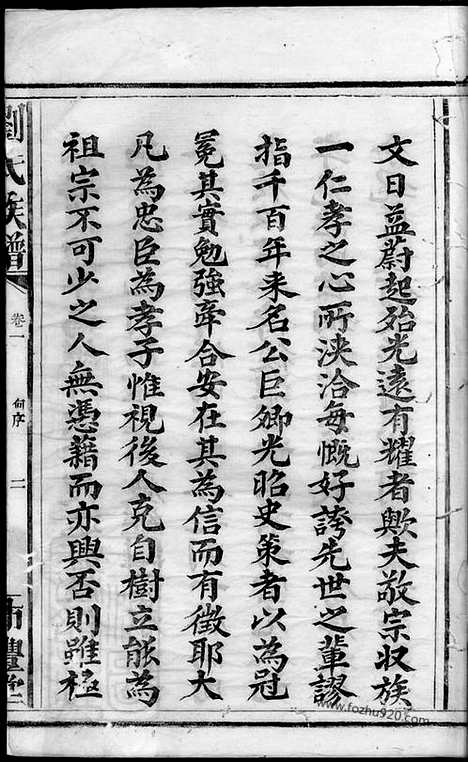 文日益蔚起殆光遠有耀者歟夫敬宗収族
一仁孝之心所浹洽每慨好誇先世之輩謬
指千百年来名公巨卿光昭史策者以為冠
冕其實勉強牽合安在其為信而有徵耶大
凡為忠臣為孝子惟視後人克自樹立能為
祖宗不可少之人無憑藉而亦興否則雖極
劉氏族譜
卷一
何序
二
豐堂
www.fozhu920.com